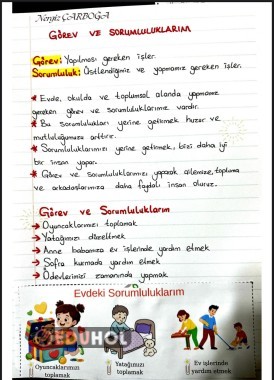 Nergiz ÇARBOĞA
GÖREV VE SORUMLULUKLARIM
Görev: Yapılması gereken işler.
Sorumluluk: Üstlendiğimiz ve yapmamız gereken işler.
* Evde, okulda ve toplumsal alanda yapmamız
gereken görev ve sorumluluklarımız vardır.
* Bu sorumlulukları yerine getirmek huzur ve
mutluluğumuzu arttırır.
* Sorumluluklarımızı yerine getirmek, bizi daha iyi
bir insan yapar.
* Görev ve sorumluluklarımızı yaparak ailemize, topluma
ve arkadaşlarımıza daha faydalı insan oluruz.
Görev ve Sorumluluklarım
→ Oyuncaklarımızı toplamak
→ Yatağımızı düzeltmek
→ Anne babamıza ev işlerinde yardım etmek
→ Sofra kurmada yardım etmek
→ Ödevlerimizi zamanında yapmak
Evdeki Sorumluluklarım
EDUHOL
Oyuncaklarımızı
toplamak
Yatağımızı
toplamak
Ev işlerinde
yardım etmek